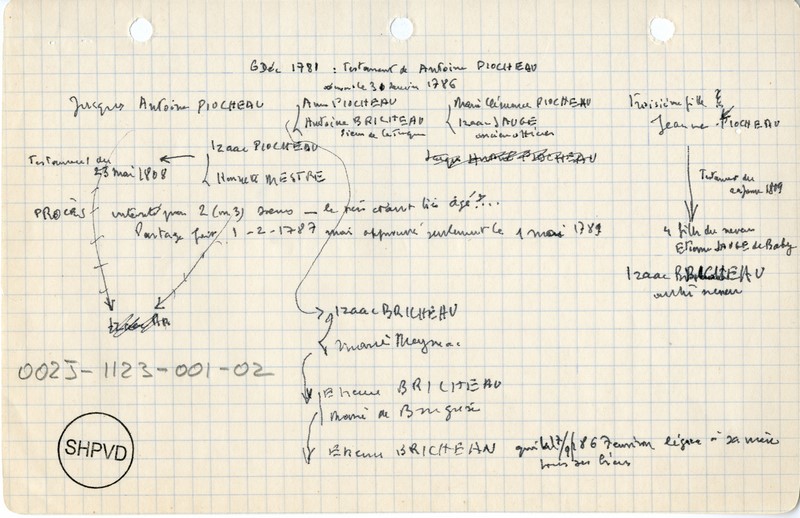 6 Déc 1781 : Testament de Antoine PIOCHEAU
31 janvier 1786
Jacques Antoine PIOCHEAU
Anne PIOCHEAU
Antoine BRICHEAU
Sieur de
Marie Clémence PIOCHEAU
Izaac JAUGE
ancien officier
Troisième fille ?
Jeanne PIOCHEAU
Izaac PIOCHEAU
Honnette MESTRE
Testament du
23 mai 1808
Testament du
1809
PROCÈS intenté par 2 (ou 3) sœurs — le père étant très âgé ?...
Partage fait 1-2-1787 mais approuvé seulement le 1 mai 1789
4 fille du neveu
Etienne JAUGE de Baby
Izaac BRICHEAU
autre neveu
Izaac BRICHEAU
Marie Meynac
Etienne BRICHEAU
Marie de
Etienne BRICHEAU
1867 environ légue à sa mère
tous ses biens
0025-1123-001-02
SHPVD